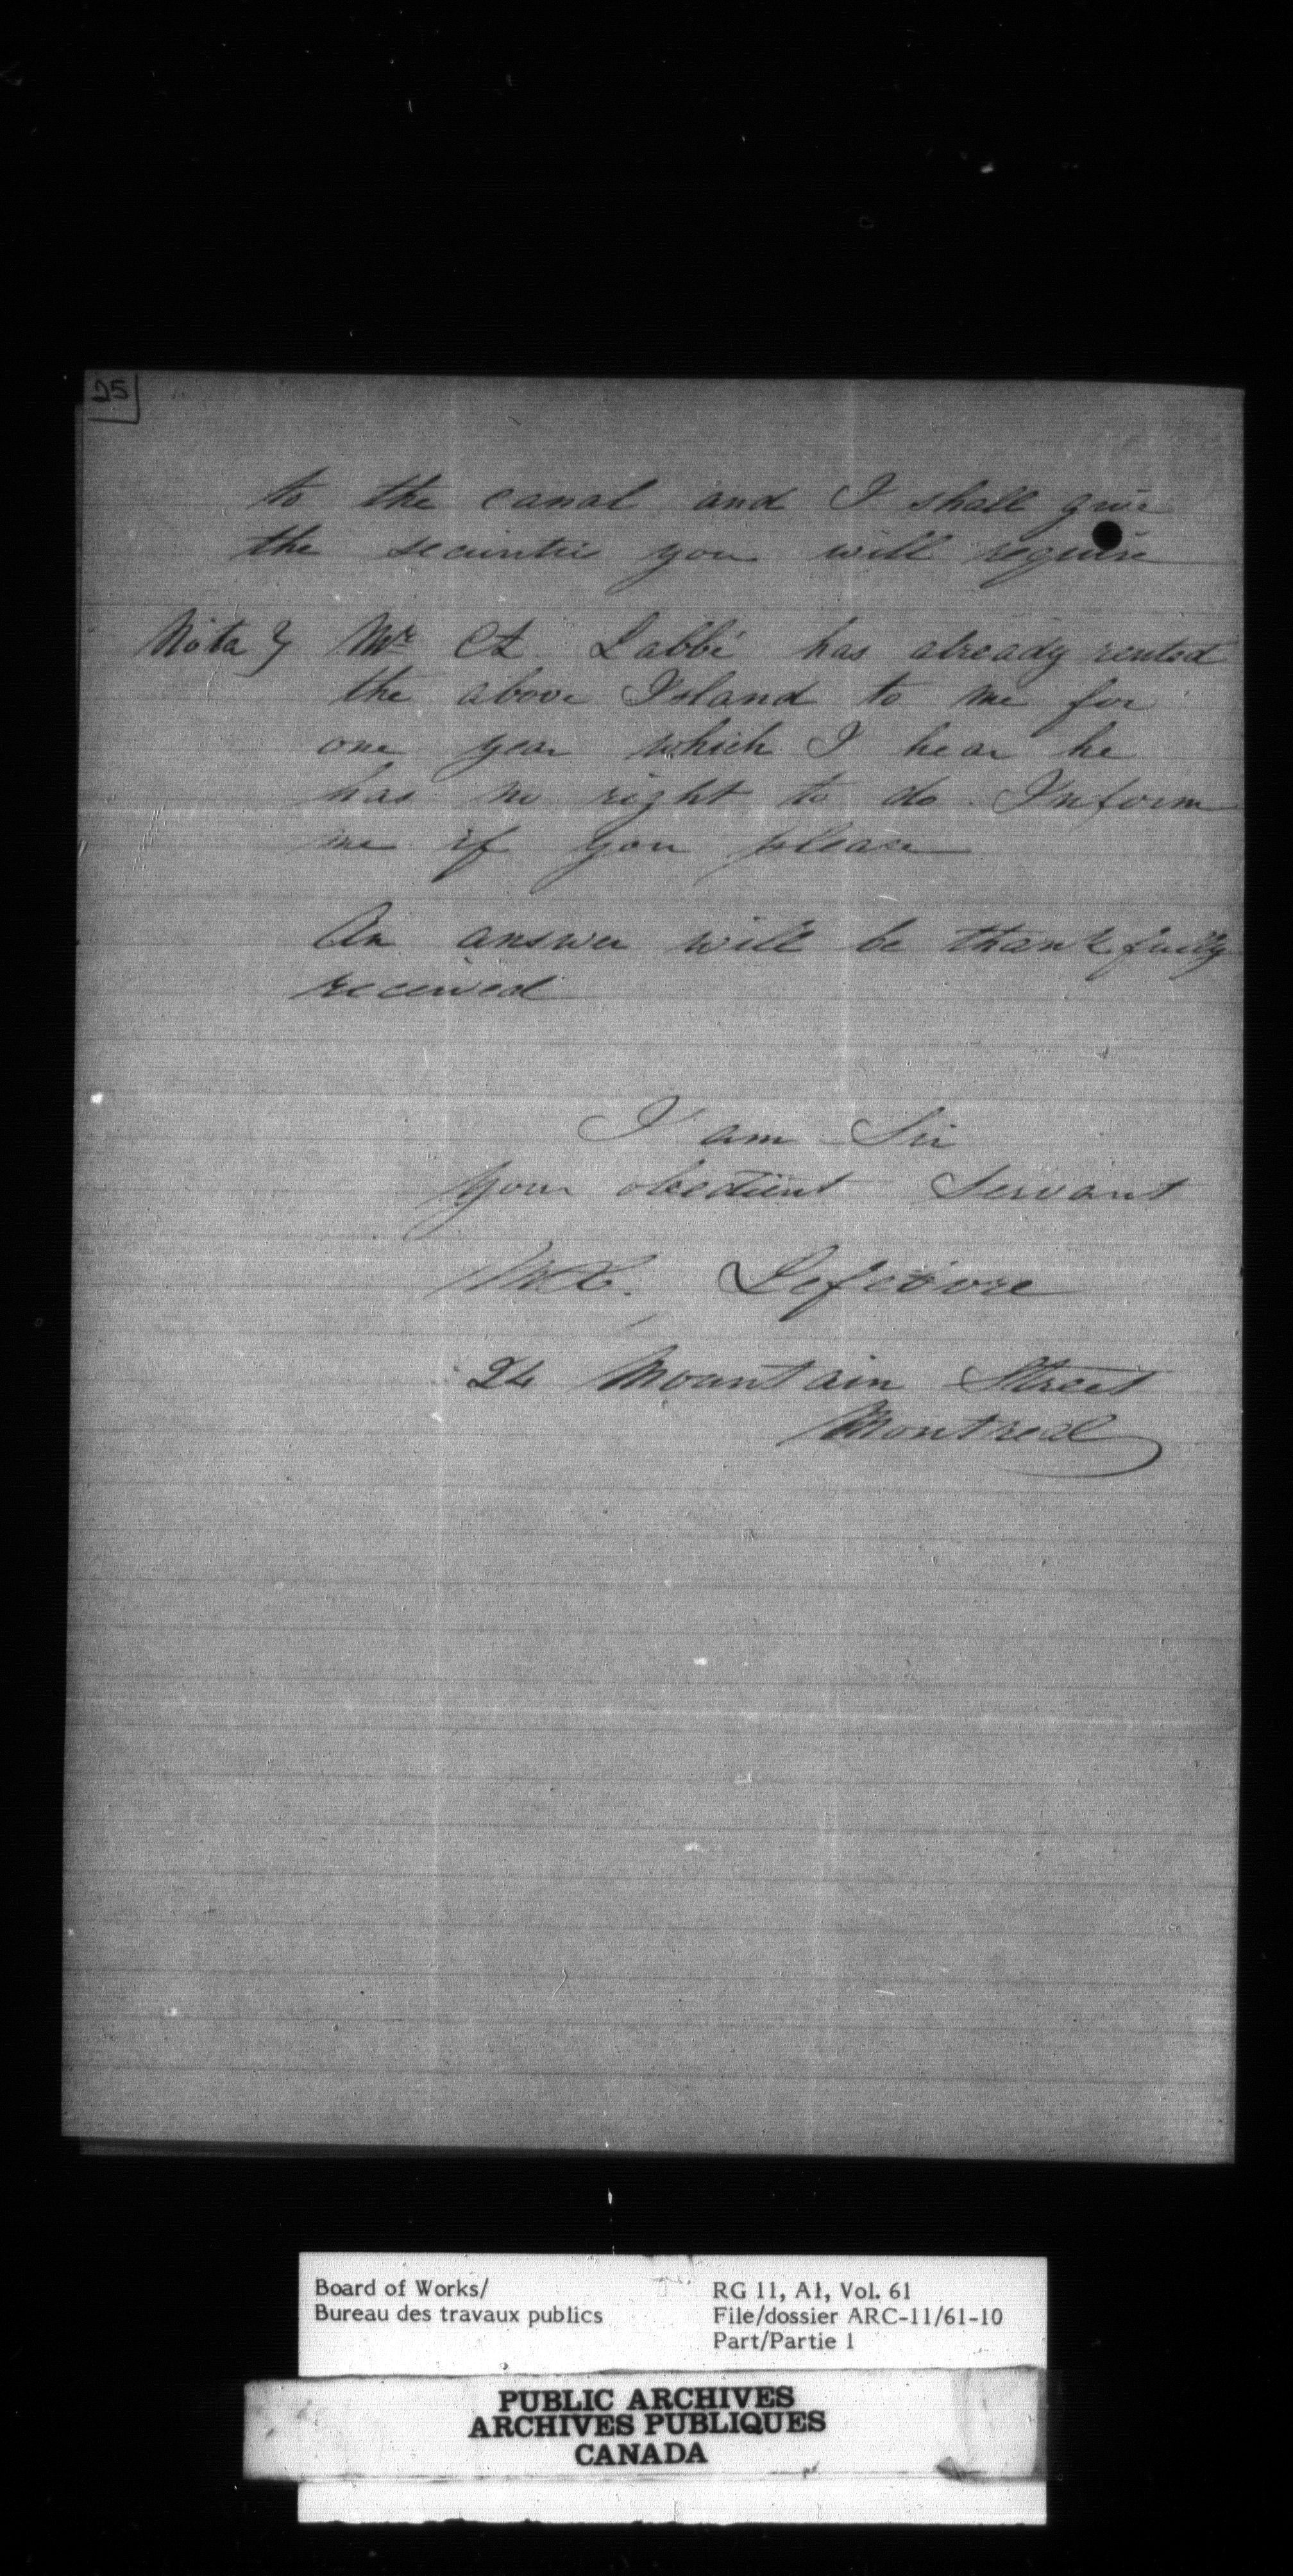 25
to the canal and I shall give
the securitie you will require
Nota } Mr A Labbé has already rented
the above Island to me for
one year which I hear he
has no right to do. Inform
me if you please
An answer will be thankfully
received
I am Sir
your obedient Servant
Lefebvre
24 Mountain Street
Montreal
Board of Works/
Bureau des travaux publics
RG 11, A1, Vol. 61
File/dossier ARC-11/61-10
Part/Partie 1
PUBLIC ARCHIVES
ARCHIVES PUBLIQUES
CANADA